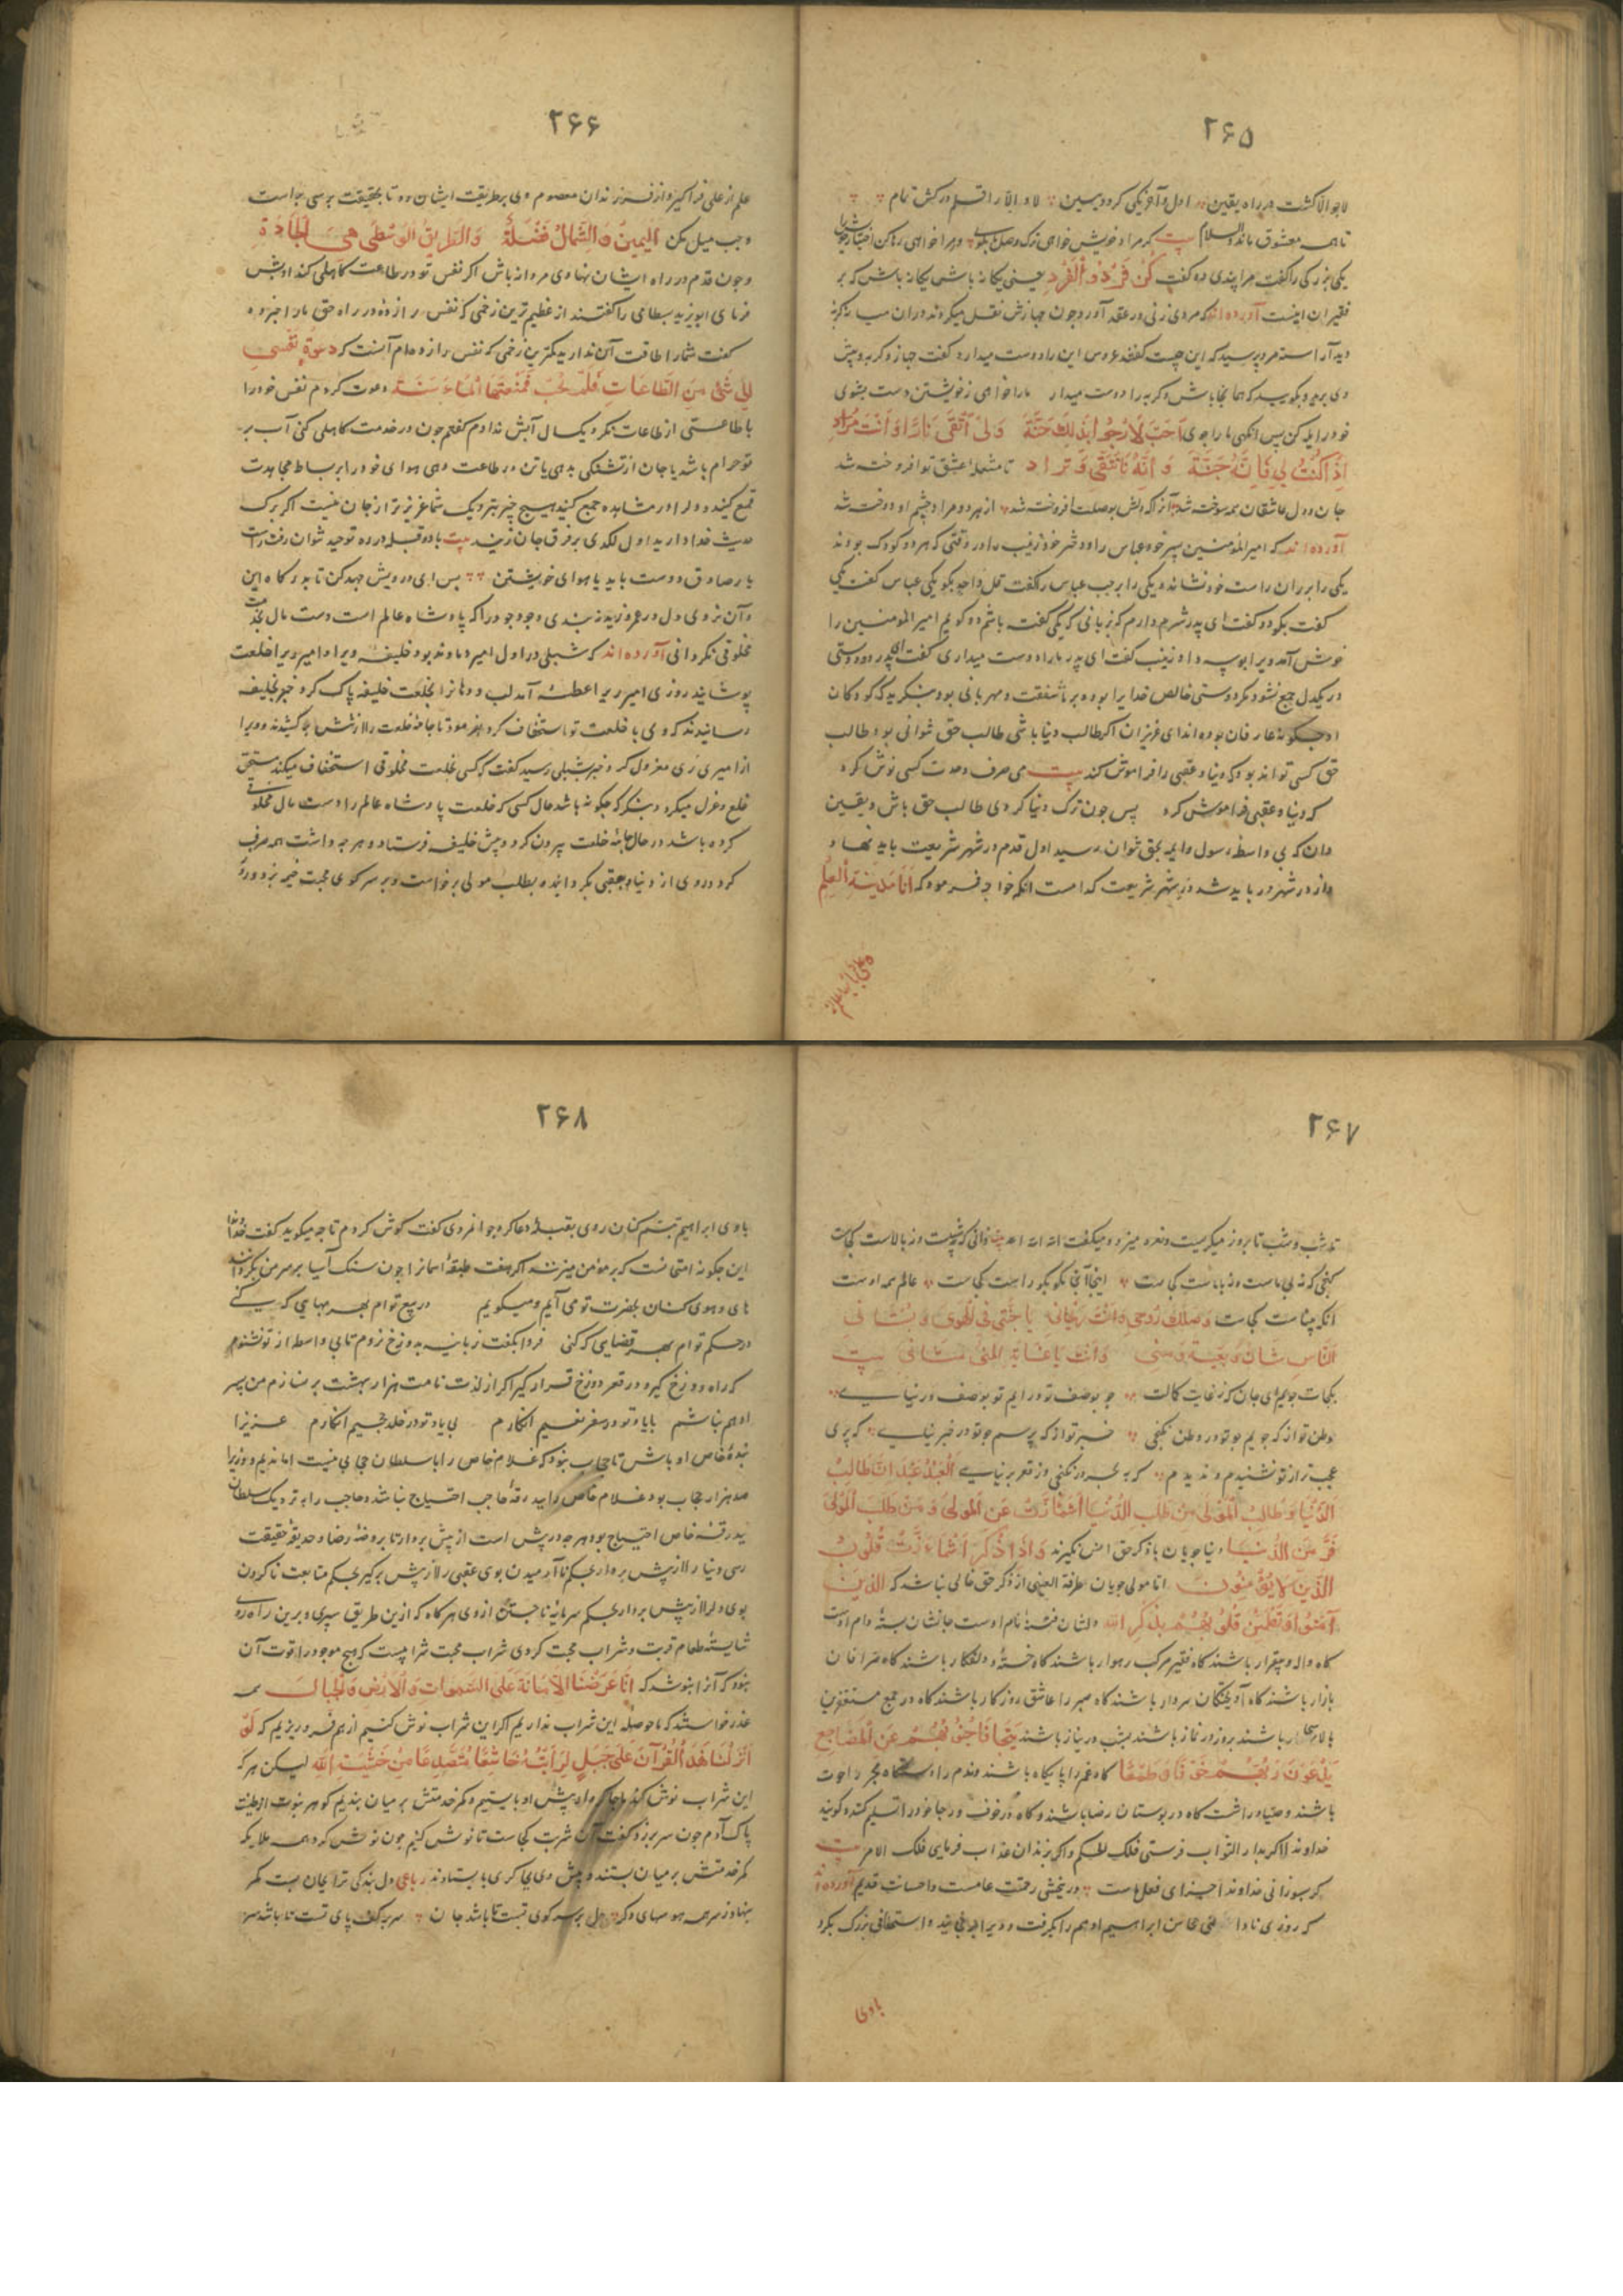 ۲۶۵
لا جو الا گشت در راه یقین اول و آخر یکی کرد و ببین لا و الا را قلم درکش تمام
تا همه معشوق ماند والسلام بیت گر مراد خویش خواهی ترک وصل ما بکوی ور مرا خواهی رها کن اختیار خویش را
یکی بزرکی را کفت مرا پندی ده کفت کُن فَرْدُ الْفَرْدِ یعنی یکانه باش یکانه باش که بر
فقیران اینست آورده اند که مردی زنی در عقد آورد چون جهازش نقل میکردند در آن میانه کربه
دید آراسته مرد پرسید که این چیست کفتند عروس این را دوست میدارد کفت جهاز و کربه و پیش
وی برید و بکویید که همانجا باش و کربه را دوست میدار ما را خواهی ز خویشتن دست بشوی
خود را یله کن پس انکهی ما را جوی
تا مشعلهٔ عشق تو افروخته شد
جان و دل عاشقان همه سوخته شد آنرا که دلش بوصلت افروخته شد از هر دو مراد چشم او دوخته شد
آورده اند که امیر المؤمنین پسر خود عباس را و دختر خود زینب را در وقتی که هر دو کودک بودند
یکی را بر ران راست خود نشانده و یکی را بر چپ عباس را کفت قل واحد بکو یکی عباس کفت یکی
کفت بکو دو کفت ای پدر شرم دارم که بزبانی که یکی کفته باشم دو کویم امیر المومنین را
خوش آمد ویرا بوسه داد زینب کفت ای پدر ما را دوست میداری کفت ای پدر دو دوستی
در یکدل جمع نشود مکر دوستی خالص خدا یرا بود و بر ما شفقت و مهربانی بود بنکرید که کودکان
او چکونه عارفان بوده اند ای عزیزان اکر طالب دنیا باشی طالب حق نتوانی بود طالب
حق کسی تواند بود که دنیا و عقبی را فراموش کند بیت می صرف وحدت کسی نوش کرد
که دنیا و عقبی فراموش کرد پس چون ترک دنیا کردی طالب حق باش و یقین
دان که بی واسطه رسول و ایمه بحق نتوان رسید اول قدم در شهر شریعت باید نهاد
و از در شهر در باید شد و در شهر شریعت کدامست انکه خواجه فرمود که اَنَا مَدینَةُ الْعِلْمِ
و علی بابها
۲۶۶
علم از علی فرا کیر و از فرزندان معصوم وی بر طریقت ایشان رو تا بحقیقت برسی بر راست
و چپ میل مکن اَلْیَمینُ وَ الشِّمالُ مَضَلَّةٌ وَ الطَّریقُ الْوُسْطی هِیَ الْجادَةُ
و چون قدم در راه ایشان نهادی مردانه باش اکر نفس تو در طاعت کاهلی کند ادبش
فرمای ابو یزید بسطامی را کفتند از عظیم ترین زخمی که نفس را زدهٔ در راه حق ما را خبر ده
کفت شما را طاقت آن ندارید کمترین زخمی که نفس را زده ام آنست که دَعَوْتُ نَفْسی
اِلی شَیْءٍ مِنَ الطّاعاتِ فَلَمْ تُجِبْ فَمَنَعْتُهَا الْماءَ سَنَةً دعوت کردم نفس خود را
با طاعتی از طاعات نکرد یکسال آبش ندادم کفتم چون در خدمت کاهلی کنی آب بر
تو حرام باشد یا جان از تشنکی بدهی یا تن در طاعت دهی هوای خود را بر بساط مجاهدت
قمع کنید و دل را در مشاهده جمع کنید هیچ چیز بنزدیک شما عزیزتر از جان نیست اکر برک
حدیث خدا دارید اول لکدی بر فرق جان زنید بیت با دو قبله در ره توحید نتوان رفت راست
یا رضای دوست باید یا هوای خویشتن پس ای درویش جهد کن تا بدرکاه این
و آن نروی و دل در عمرو زید نبندی
مخلوقی نکردانی آورده اند که شبلی در اول امیر دماوند بود خلیفه ویرا و امیر ری را خلعت
پوشانید روزی امیر ری را عطسهٔ آمد لب و دهانرا بخلعت خلیفه پاک کرد خبر بخلیفه
رسانیدند که وی با خلعت تو استخفاف کرد بفرمود تا جامهٔ خلعت را از تنش بر کشیدند و ویرا
از امیری ری معزول کرد خبر بشبلی رسید کفت کسی بخلعت مخلوقی استخفاف میکند مستحق
خلع و عزل میکرد بنکر که چکونه باشد حال کسی که خلعت پادشاه عالم را دست مال مخلوقی
کرده باشد در حال جامهٔ خلعت بیرون کرد و پیش خلیفه فرستاد و هر چه داشت همه صرف
کرد و روی از دنیا و عقبی بکردانیده بطلب مولی برخاست و بر سر کوی محبت خیمه بزد و درد
۲۶۷
نه شب و شب تا بروز میکریست و نعره میزد و میکفت الله الله
کنجی که نه بی ماست و نه باماست کجاست اینجا آنجا مکو بکو راست کجاست عالم همه اوست
انکه بیناست کجاست
النّاسِ شانٌ وَ بُغْیَةٌ وَ مُنی وَ اَنْتَ یا غایَةَ الْمُنی شانی بیت
بکجات جویم ای جان که ز غایت کمالت چو بوصف تو در ایم تو بوصف در نیایی
وطن تو از که جویم چو تو در وطن نکنجی خبر تو از که پرسم چو تو در خبر نیایی که پری
عجب تر از تو نشنیدم و ندیدم که به بحر در نکنجی و ز قعر بر نیایی اَلْعَبْدُ عَبْدانِ طالِبُ
الدُّنْیا وَ طالِبُ الْمَوْلی مَنْ طَلَبَ الدُّنْیا اشْمَأَزَّتْ عَنِ الْمَوْلی وَ مَنْ طَلَبَ الْمَوْلی
فَرَّ مِنَ الدُّنْیا دنیا جویان با ذکر حق انس نکیرند وَ اِذا ذُکِرَ اشْمَأَزَّتْ قُلُوبُ
الَّذینَ لا یُؤْمِنُونَ اما مولی جویان طرفة العینی از ذکر حق خالی نباشد که الَّذینَ
آمَنُوا وَ تَطْمَئِنُّ قُلُوبُهُمْ بِذِکْرِ اللهِ دلشان فتنهٔ نام اوست جانشان بستهٔ دام اوست
کاه واله و بیقرار باشند کاه فقیر مرکب رهوار باشند کاه خسته و دلفکار باشند کاه صرافان
بازار باشند کاه آویختکان سر دار باشند کاه صبر را عاشق روزکار باشند کاه در جمع مستغفرین
بالاسحار باشند بروز در نماز باشند بشب در نیاز باشند تَتَجافی جُنُوبُهُمْ عَنِ الْمَضاجِعِ
یَدْعُونَ رَبَّهُمْ خَوْفًا وَ طَمَعًا کاه غم را پایکاه باشند و ندم را
باشند و کاه در بوستان رضا باشند و کاه در خوف و رجا خود را تسلیم کنند و کویند
خداوندا اکر بدار الثواب فرستی فلک الحکم و اکر بزندان عذاب فرمایی فلک الامر بیت
کر بسوزانی خداوندا جزای فعل ماست ور ببخشی رحمتت عامست و احسانت قدیم آورده اند
که روزی نادا ابراهیم ادهم را بکرفت و ویرا برنجانید و استخفافی بزرک بکرد
با وی
۲۶۸
با وی ابراهیم تبسم کنان روی بقبلهٔ دعا کرد جوانمردی کفت کوش کردم تا چه میکوید کفت خداوندا
این چکونه امتحانست که بر مؤمن میزنند اکر هفت طبقهٔ آسمانرا چون سنک آسیا بر سر من بکردانند
های و هوی کنان بحضرت تو می آیم و میکویم در بیع توام بهر بهایی که کنی
در حکم توام بهر قضایی که کنی فردا بکفت زبانیه بدوزخ نروم تا بی واسطه از تو نشنوم
که راه دوزخ کیر و در قعر دوزخ قرار کیر اکر از لذت نامت هزار بهشت بر نسازم من پسر
ادهم نباشم با یاد تو در سقر نعیم انکارم بی یاد تو در خلد جحیم انکارم عزیزا
بندهٔ خاص او باش تا حجاب نبود که غلام خاص را با سلطان حجابی نیست اما ندیم و وزیر را
صد هزار حجاب بود غلام خاص را بدرقهٔ حاجب احتیاج نباشد و حاجب را بنزدیک سلطان
بدرقهٔ خاص احتیاج بود هر چه در پیش است از پیش بردار تا بروضهٔ رضا و حدیقهٔ حقیقت
رسی دنیا را از پیش بردار بحکم نا آرمیدن بوی عقبی را از پیش برکیر بحکم متابعت ناکردن
بوی و دل را از پیش بردار بحکم سرمایهٔ ناجستن از وی هرکاه که ازین طریق سپری و برین راه روی
شایستهٔ طعام قربت و شراب محبت کردی شراب محبت شرابیست که هیچ موجود را قوت آن
نبود که آنرا بنوشد که اِنّا عَرَضْنَا الْاَمانَةَ عَلَی السَّمواتِ وَ الْاَرْضِ وَ الْجِبالِ همه
عذر خواستند که ما حوصلهٔ این شراب نداریم اکر این شراب نوش کنیم از هم فرو ریزیم که لَوْ
اَنْزَلْنا هذَا الْقُرْآنَ عَلی جَبَلٍ لَرَاَیْتَهُ خاشِعًا مُتَصَدِّعًا مِنْ خَشْیَةِ اللهِ لیکن هر که
این شراب نوش کند ما چاکروار پیش او بایستیم و کمر خدمتش بر میان بندیم کوهر نبوت از طینت
پاک آدم چون سر بر زد کفت آن شربت کجاست تا نوش کنیم چون نوش کرد همه ملایکه
کمر خدمتش بر میان بستند و پیش وی بچاکری باستادند رباعی دل بندکی ترا بجان بست کمر
بنهاد ز سر همه هوسهای دکر دل بر سر کوی تست تا باشد جان سر بر کف پای تست تا باشد سر